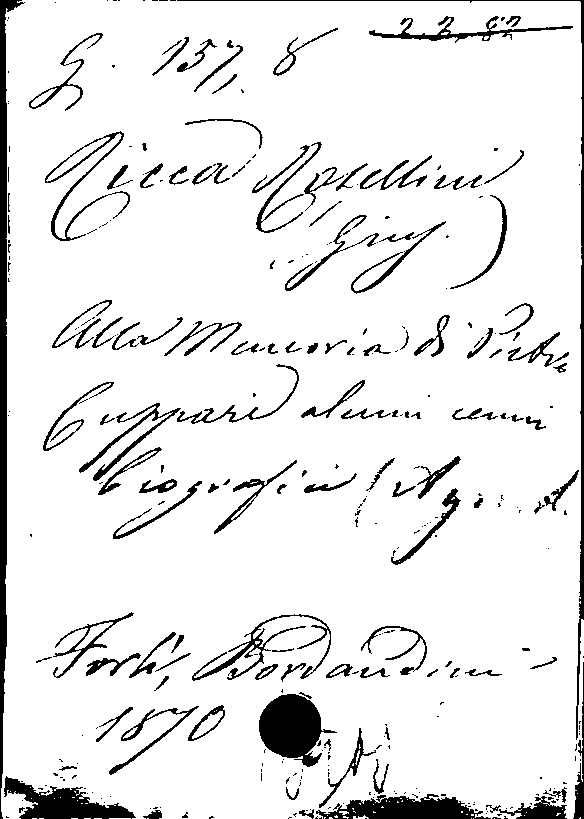 2.2.82
G. 157, 8
Ricca Rosellini
Gius.)
Alla Memoria di Pietro
Cuppari alcuni cenni
biografici
Forlì, Bordandini
1870